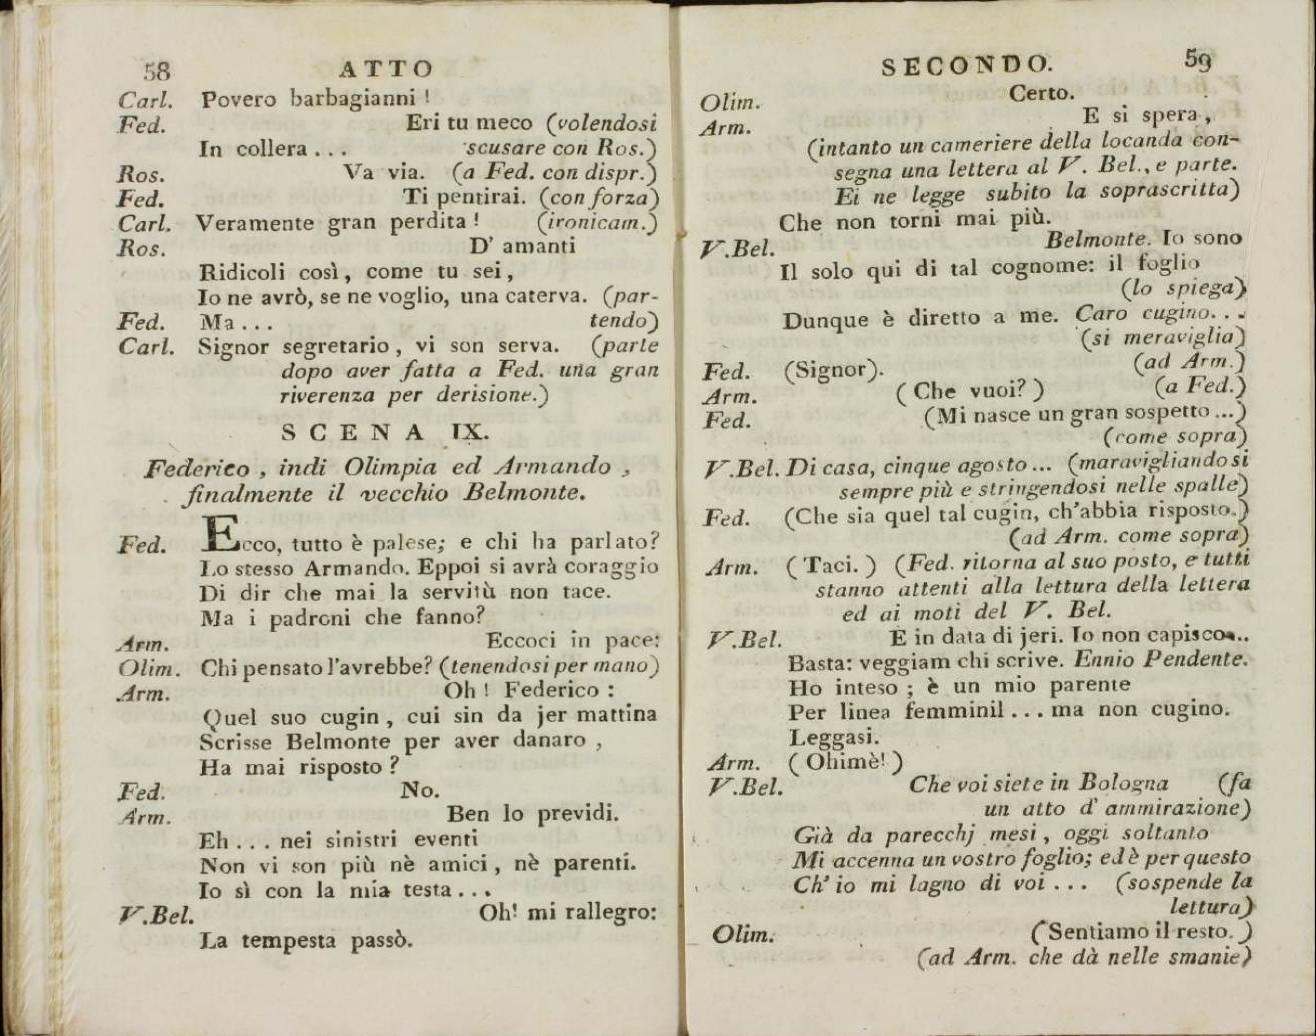 58 ATTO
Carl. Povero barbagianni !
Fed. Eri tu meco (volendosi
In collera . . . scusare con Ros.)
Ros. Va via. (a Fed. con dispr.)
Fed. Ti pentirai. (con forza)
Carl. Veramente gran perdita ! (ironicam.)
Ros. D' amanti
Ridicoli così, come tu sei,
Io ne avrò, se ne voglio, una caterva. (par-
Fed. Ma . . . tendo)
Carl. Signor segretario, vi son serva. (parte
dopo aver fatta a Fed. una gran
riverenza per derisione.)
SCENA IX.
Federico, indi Olimpia ed Armando,
finalmente il vecchio Belmonte.
Fed. Ecco, tutto è palese; e chi ha parlato?
Lo stesso Armando. Eppoi si avrà coraggio
Di dir che mai la servitù non tace.
Ma i padroni che fanno?
Arm. Eccoci in pace:
Olim. Chi pensato l'avrebbe? (tenendosi per mano)
Arm. Oh ! Federico :
Quel suo cugin, cui sin da jer mattina
Scrisse Belmonte per aver danaro,
Ha mai risposto ?
Fed. No.
Arm. Ben lo previdi.
Eh . . . nei sinistri eventi
Non vi son più nè amici, nè parenti.
Io sì con la mia testa . . .
V.Bel. Oh! mi rallegro:
La tempesta passò.
SECONDO. 59
Olim. Certo.
Arm. E si spera,
(intanto un cameriere della locanda con-
segna una lettera al V. Bel., e parte.
Ei ne legge subito la soprascritta)
Che non torni mai più.
V.Bel. Belmonte. Io sono
Il solo qui di tal cognome: il foglio
(lo spiega)
Dunque è diretto a me. Caro cugino. . .
(si meraviglia)
Fed. (Signor). (ad Arm.)
Arm. ( Che vuoi? ) (a Fed.)
Fed. (Mi nasce un gran sospetto ...)
(come sopra)
V.Bel. Di casa, cinque agosto ... (maravigliandosi
sempre più e stringendosi nelle spalle)
Fed. (Che sia quel tal cugin, ch'abbia risposto.)
(ad Arm. come sopra)
Arm. ( Taci. ) (Fed. ritorna al suo posto, e tutti
stanno attenti alla lettura della lettera
ed ai moti del V. Bel.
V.Bel. E in data di jeri. Io non capisco...
Basta: veggiam chi scrive. Ennio Pendente.
Ho inteso ; è un mio parente
Per linea femminil . . . ma non cugino.
Leggasi.
Arm. ( Ohimè! )
V.Bel. Che voi siete in Bologna (fa
un atto d' ammirazione)
Già da parecchj mesi, oggi soltanto
Mi accenna un vostro foglio; ed è per questo
Ch' io mi lagno di voi . . . (sospende la
lettura)
Olim. (Sentiamo il resto. )
(ad Arm. che dà nelle smanie)